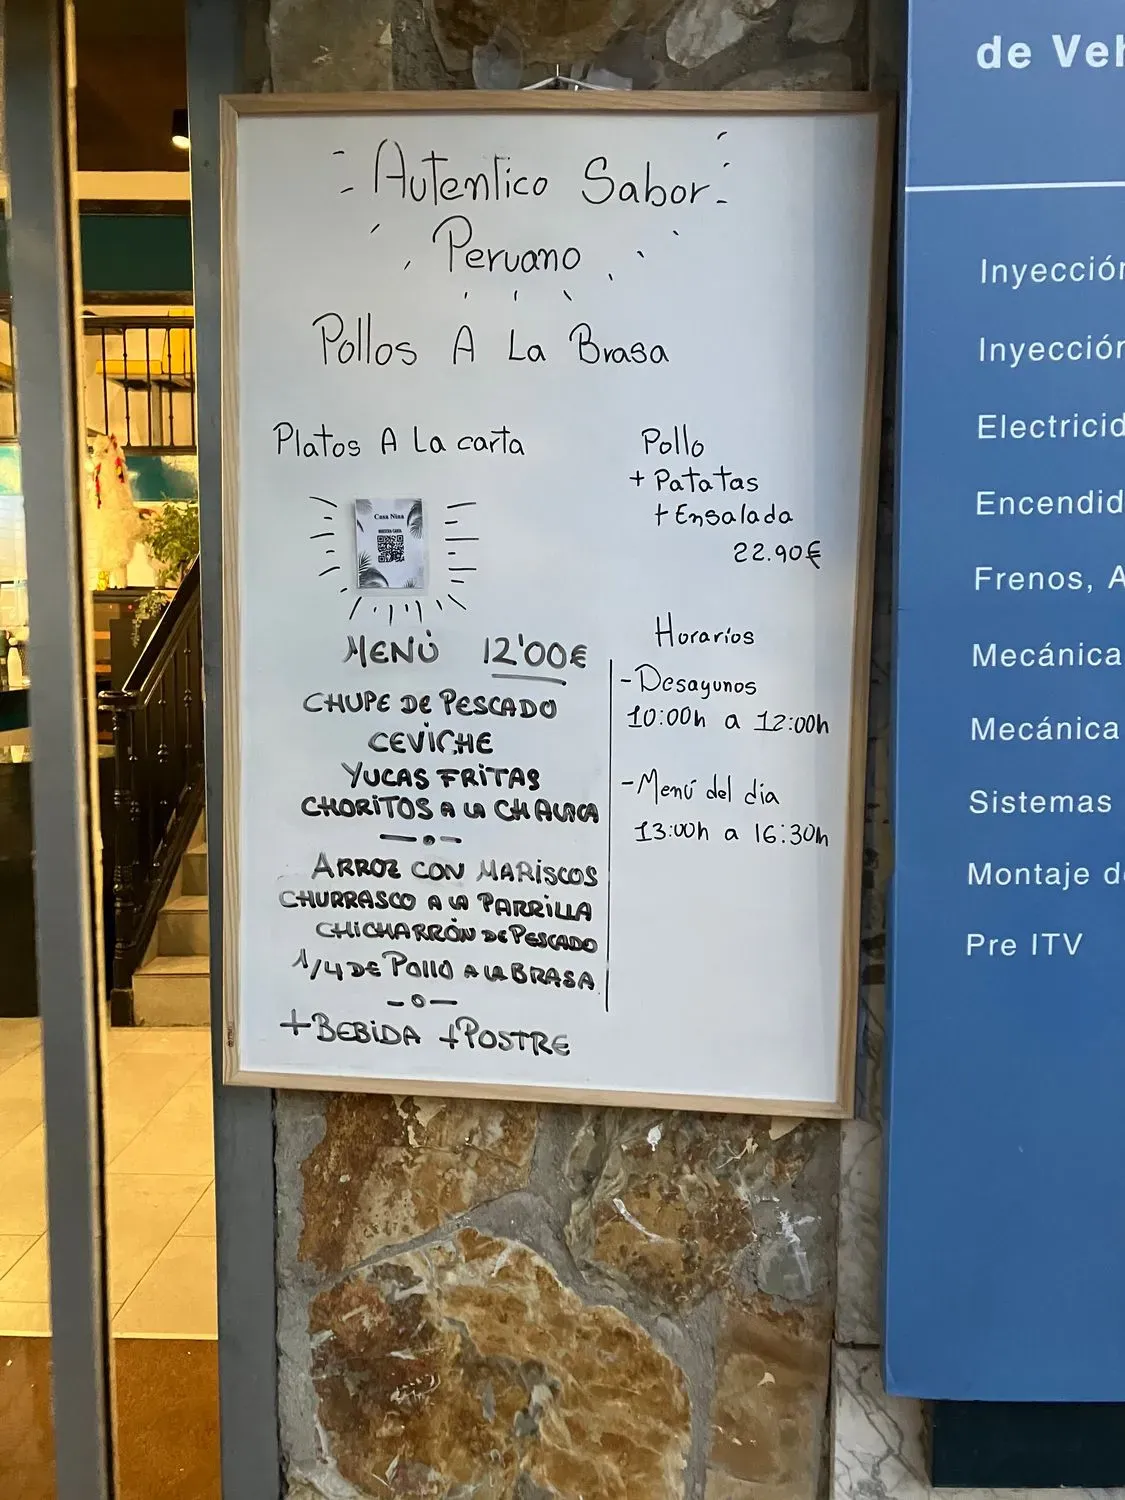 Autentico Sabor
Peruano
Pollos A La Brasa
Platos A La carta
Casa Nina
NUESTRA CARTA
MENÚ 12'00€
CHUPE DE PESCADO
CEVICHE
YUCAS FRITAS
CHORITOS A LA CHALACA
ARROZ CON MARISCOS
CHURRASCO A LA PARRILLA
CHICHARRÓN DE PESCADO
1/4 DE POLLO A LA BRASA
+BEBIDA +POSTRE
Pollo
+ Patatas
+ Ensalada
22.90€
Horarios
-Desayunos
10:00h a 12:00h
-Menú del dia
13:00h a 16:30h
de Veh
Inyección
Inyección
Electricid
Encendid
Frenos, A
Mecánica
Mecánica
Sistemas
Montaje de
Pre ITV